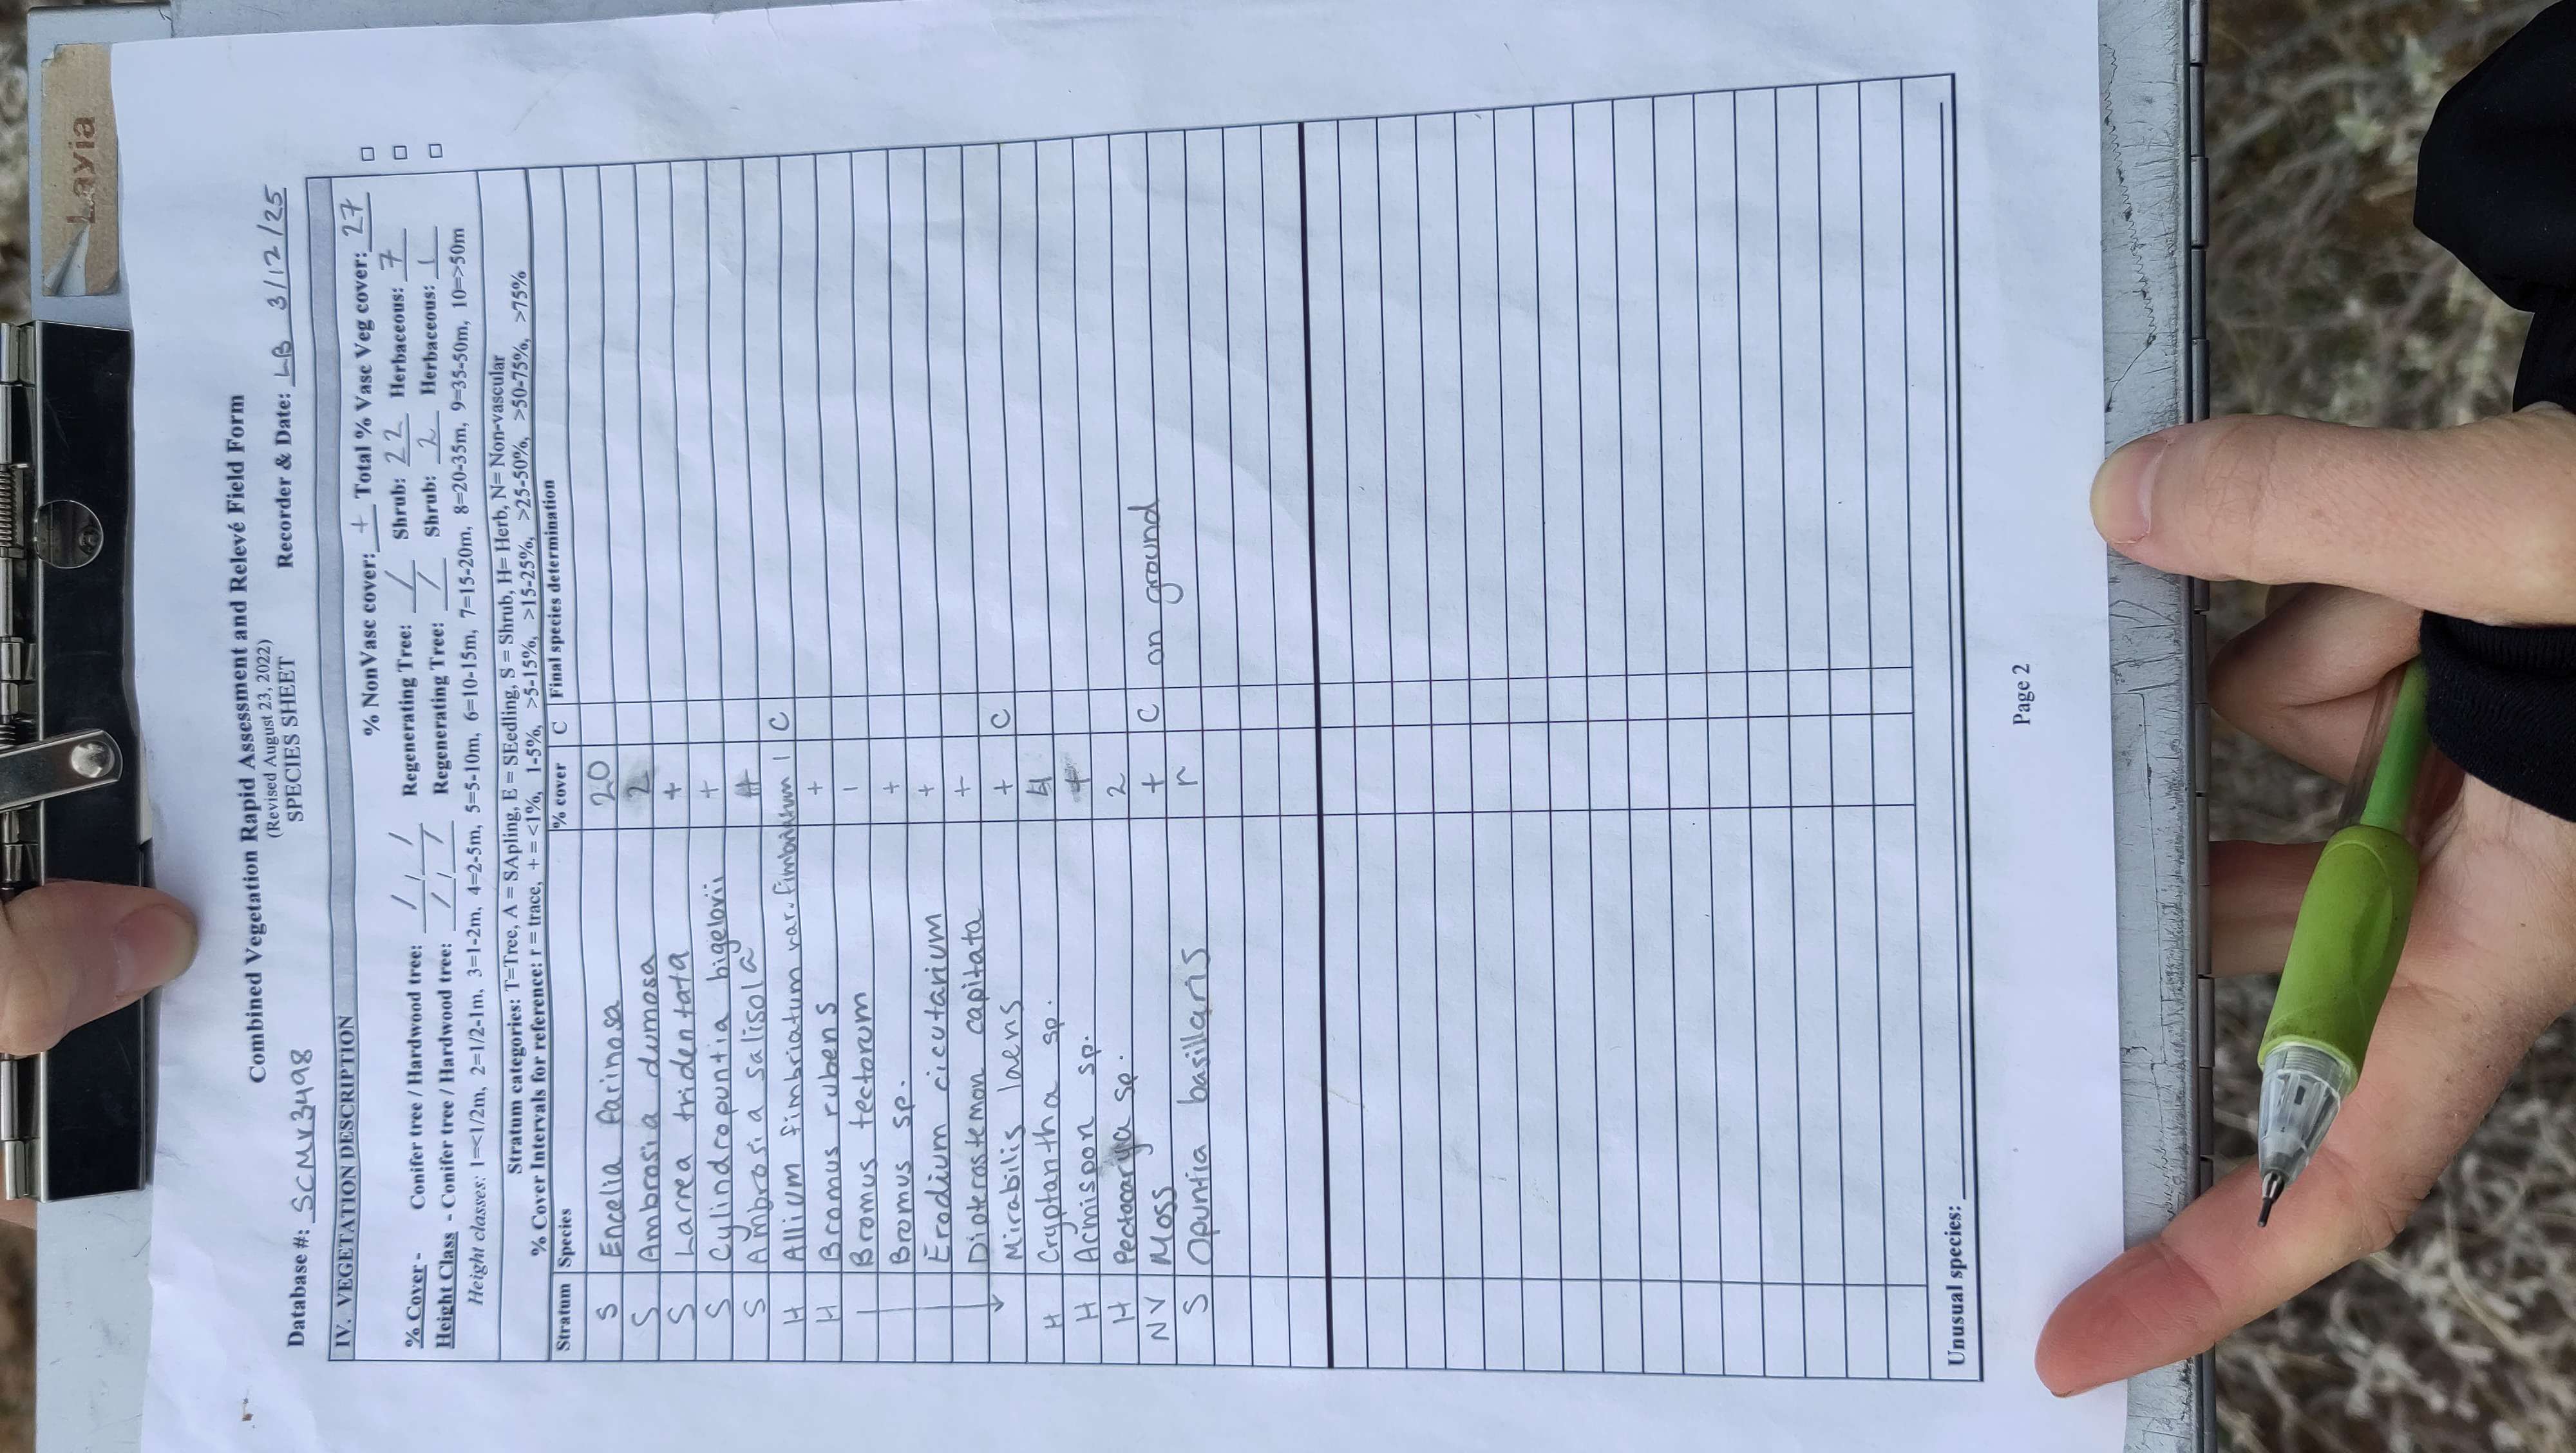 Layia
Combined Vegetation Rapid Assessment and Relevé Field Form
(Revised August 23, 2022)
SPECIES SHEET
Database #: SCMV3498 Recorder & Date: LB 3/12/25
IV. VEGETATION DESCRIPTION
% NonVasc cover: + Total % Vasc Veg cover: 27
% Cover - Conifer tree / Hardwood tree: / / / Regenerating Tree: / Shrub: 22 Herbaceous: 7
Height Class - Conifer tree / Hardwood tree: / / / Regenerating Tree: / Shrub: 2 Herbaceous: 1
Height classes: 1=<1/2m, 2=1/2-1m, 3=1-2m, 4=2-5m, 5=5-10m, 6=10-15m, 7=15-20m, 8=20-35m, 9=35-50m, 10=>50m
Stratum categories: T=Tree, A = SApling, E = SEedling, S = Shrub, H= Herb, N= Non-vascular
% Cover Intervals for reference: r = trace, + = <1%, 1-5%, >5-15%, >15-25%, >25-50%, >50-75%, >75%
Stratum Species % cover C Final species determination
S Encelia farinosa 20
S Ambrosia dumosa 2
S Larrea tridentata +
S Cylindropuntia bigelovii +
S Ambrosia salisola
H Allium fimbriatum var. fimbriatum 1 C
H Bromus rubens +
Bromus tectorum 1
Bromus sp. +
Erodium cicutarium +
Dipterostemon capitata +
Mirabilis laevis + C
H Cryptantha sp.
H Acmispon sp. +
H Pectocarya sp. 2
NV Moss + C on ground
S Opuntia basillaris r
Unusual species:
Page 2